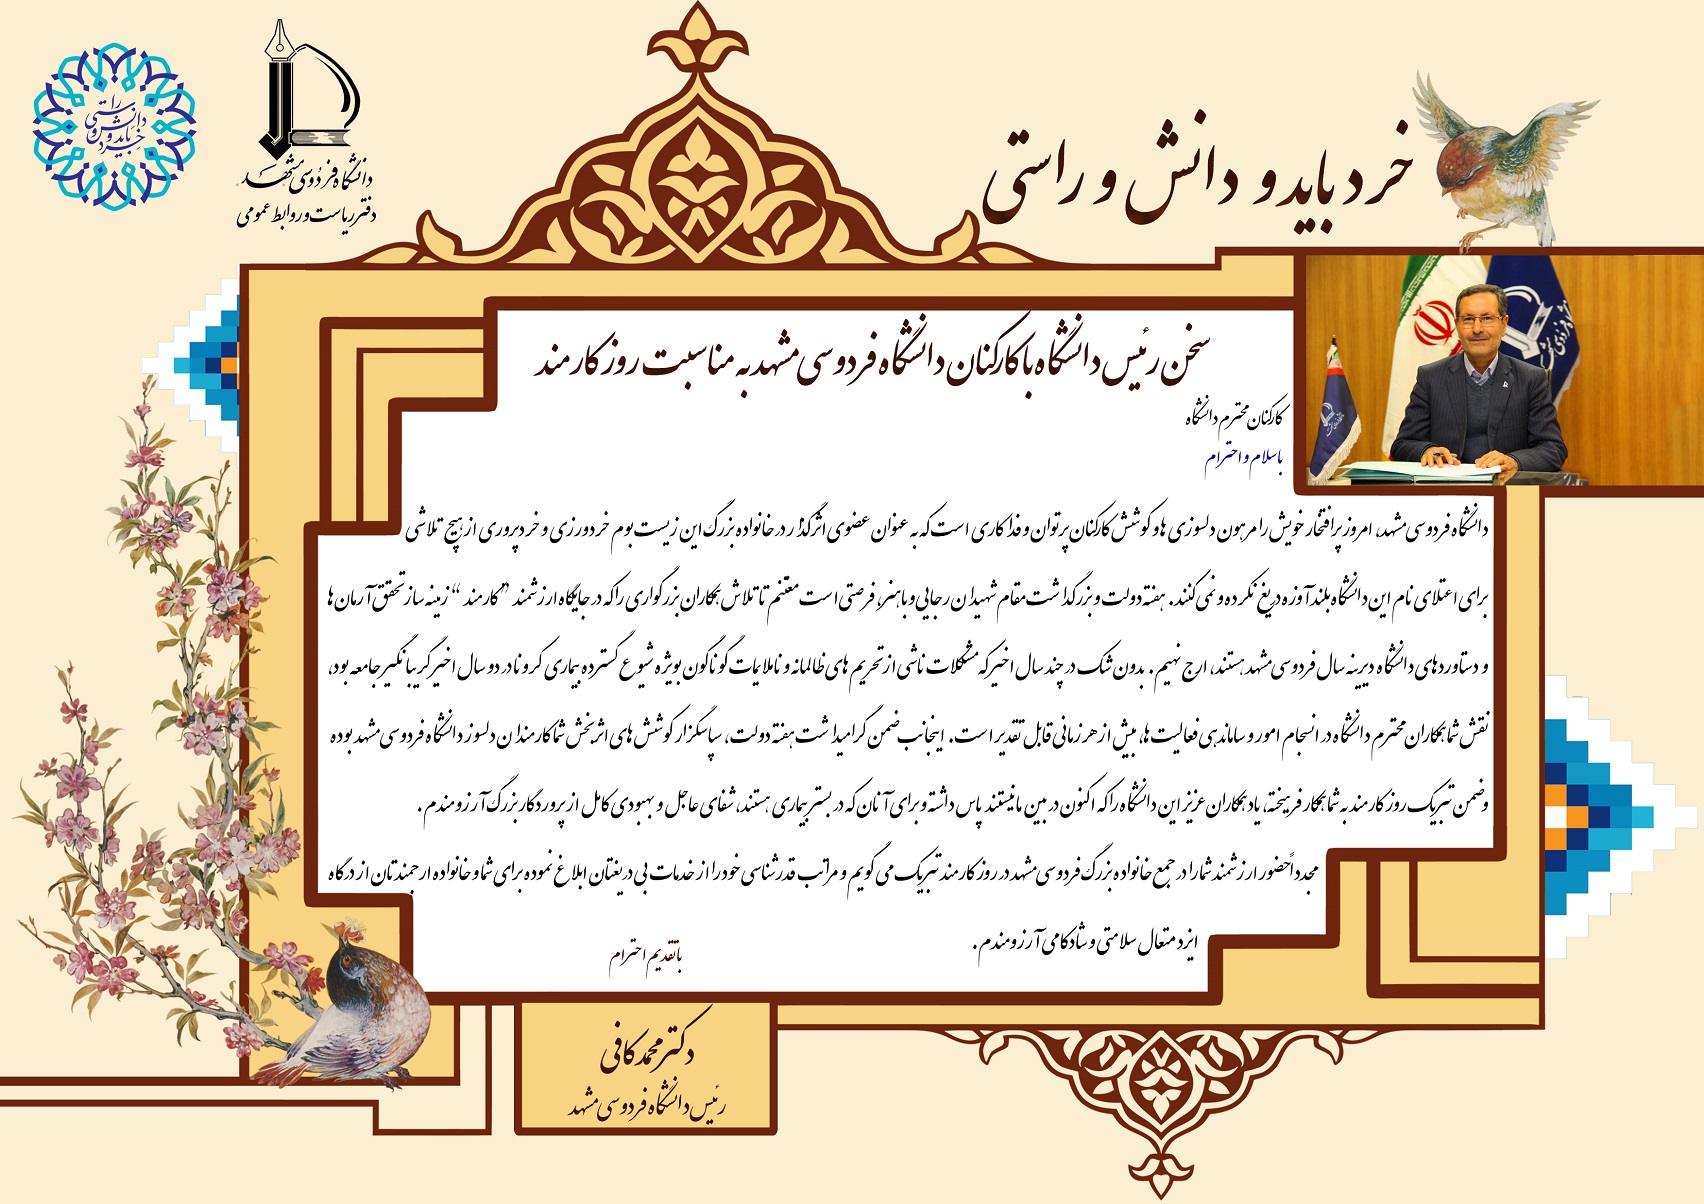 خرد باید و دانش و راستی
خرد باید و دانش و راستی
دانشگاه فردوسی مشهد
دفتر ریاست و روابط عمومی
سخن رئیس دانشگاه با کارکنان دانشگاه فردوسی مشهد به مناسبت روز کارمند
کارکنان محترم دانشگاه
با سلام و احترام
دانشگاه فردوسی مشهد، امروز پرافتخار خویش را مرهون دلسوزی ها و کوشش کارکنان پرتوان و فداکاری است که به عنوان عضوی اثرگذار در خانواده بزرگ این زیست بوم خردورزی و خردپروری از هیچ تلاشی
برای اعتلای نام این دانشگاه بلندآوازه دریغ نکرده و نمی کنند. هفته دولت و بزرگداشت مقام شهیدان رجایی و باهنر، فرصتی است مغتنم تا تلاش همکاران بزرگواری را که در جایگاه ارزشمند "کارمند" زمینه ساز تحقق آرمان ها
و دستاوردهای دانشگاه دیرینه سال فردوسی مشهد هستند، ارج نهیم. بدون شک در چند سال اخیر که مشکلات ناشی از تحریم های ظالمانه و ناملایمات گوناگون بویژه شیوع گسترده بیماری کرونا در دو سال اخیر گریبانگیر جامعه بود،
نقش شما همکاران محترم دانشگاه در انسجام امور و ساماندهی فعالیت ها، بیش از هر زمانی قابل تقدیر است. اینجانب ضمن گرامیداشت هفته دولت، سپاسگزار کوشش های اثربخش شما کارمندان دلسوز دانشگاه فردوسی مشهد بوده
و ضمن تبریک روز کارمند به شما همکار فرهیخته، یاد همکاران عزیز این دانشگاه را که اکنون در بین ما نیستند پاس داشته و برای آنان که در بستر بیماری هستند، شفای عاجل و بهبودی کامل از پروردگار بزرگ آرزومندم.
مجدداً حضور ارزشمند شما را در جمع خانواده بزرگ فردوسی مشهد در روز کارمند تبریک می گویم و مراتب قدرشناسی خود را از خدمات بی دریغتان ابلاغ نموده برای شما و خانواده ارجمندتان از درگاه
ایزد متعال سلامتی و شادکامی آرزومندم.
با تقدیم احترام
دکتر محمد کافی
رئیس دانشگاه فردوسی مشهد